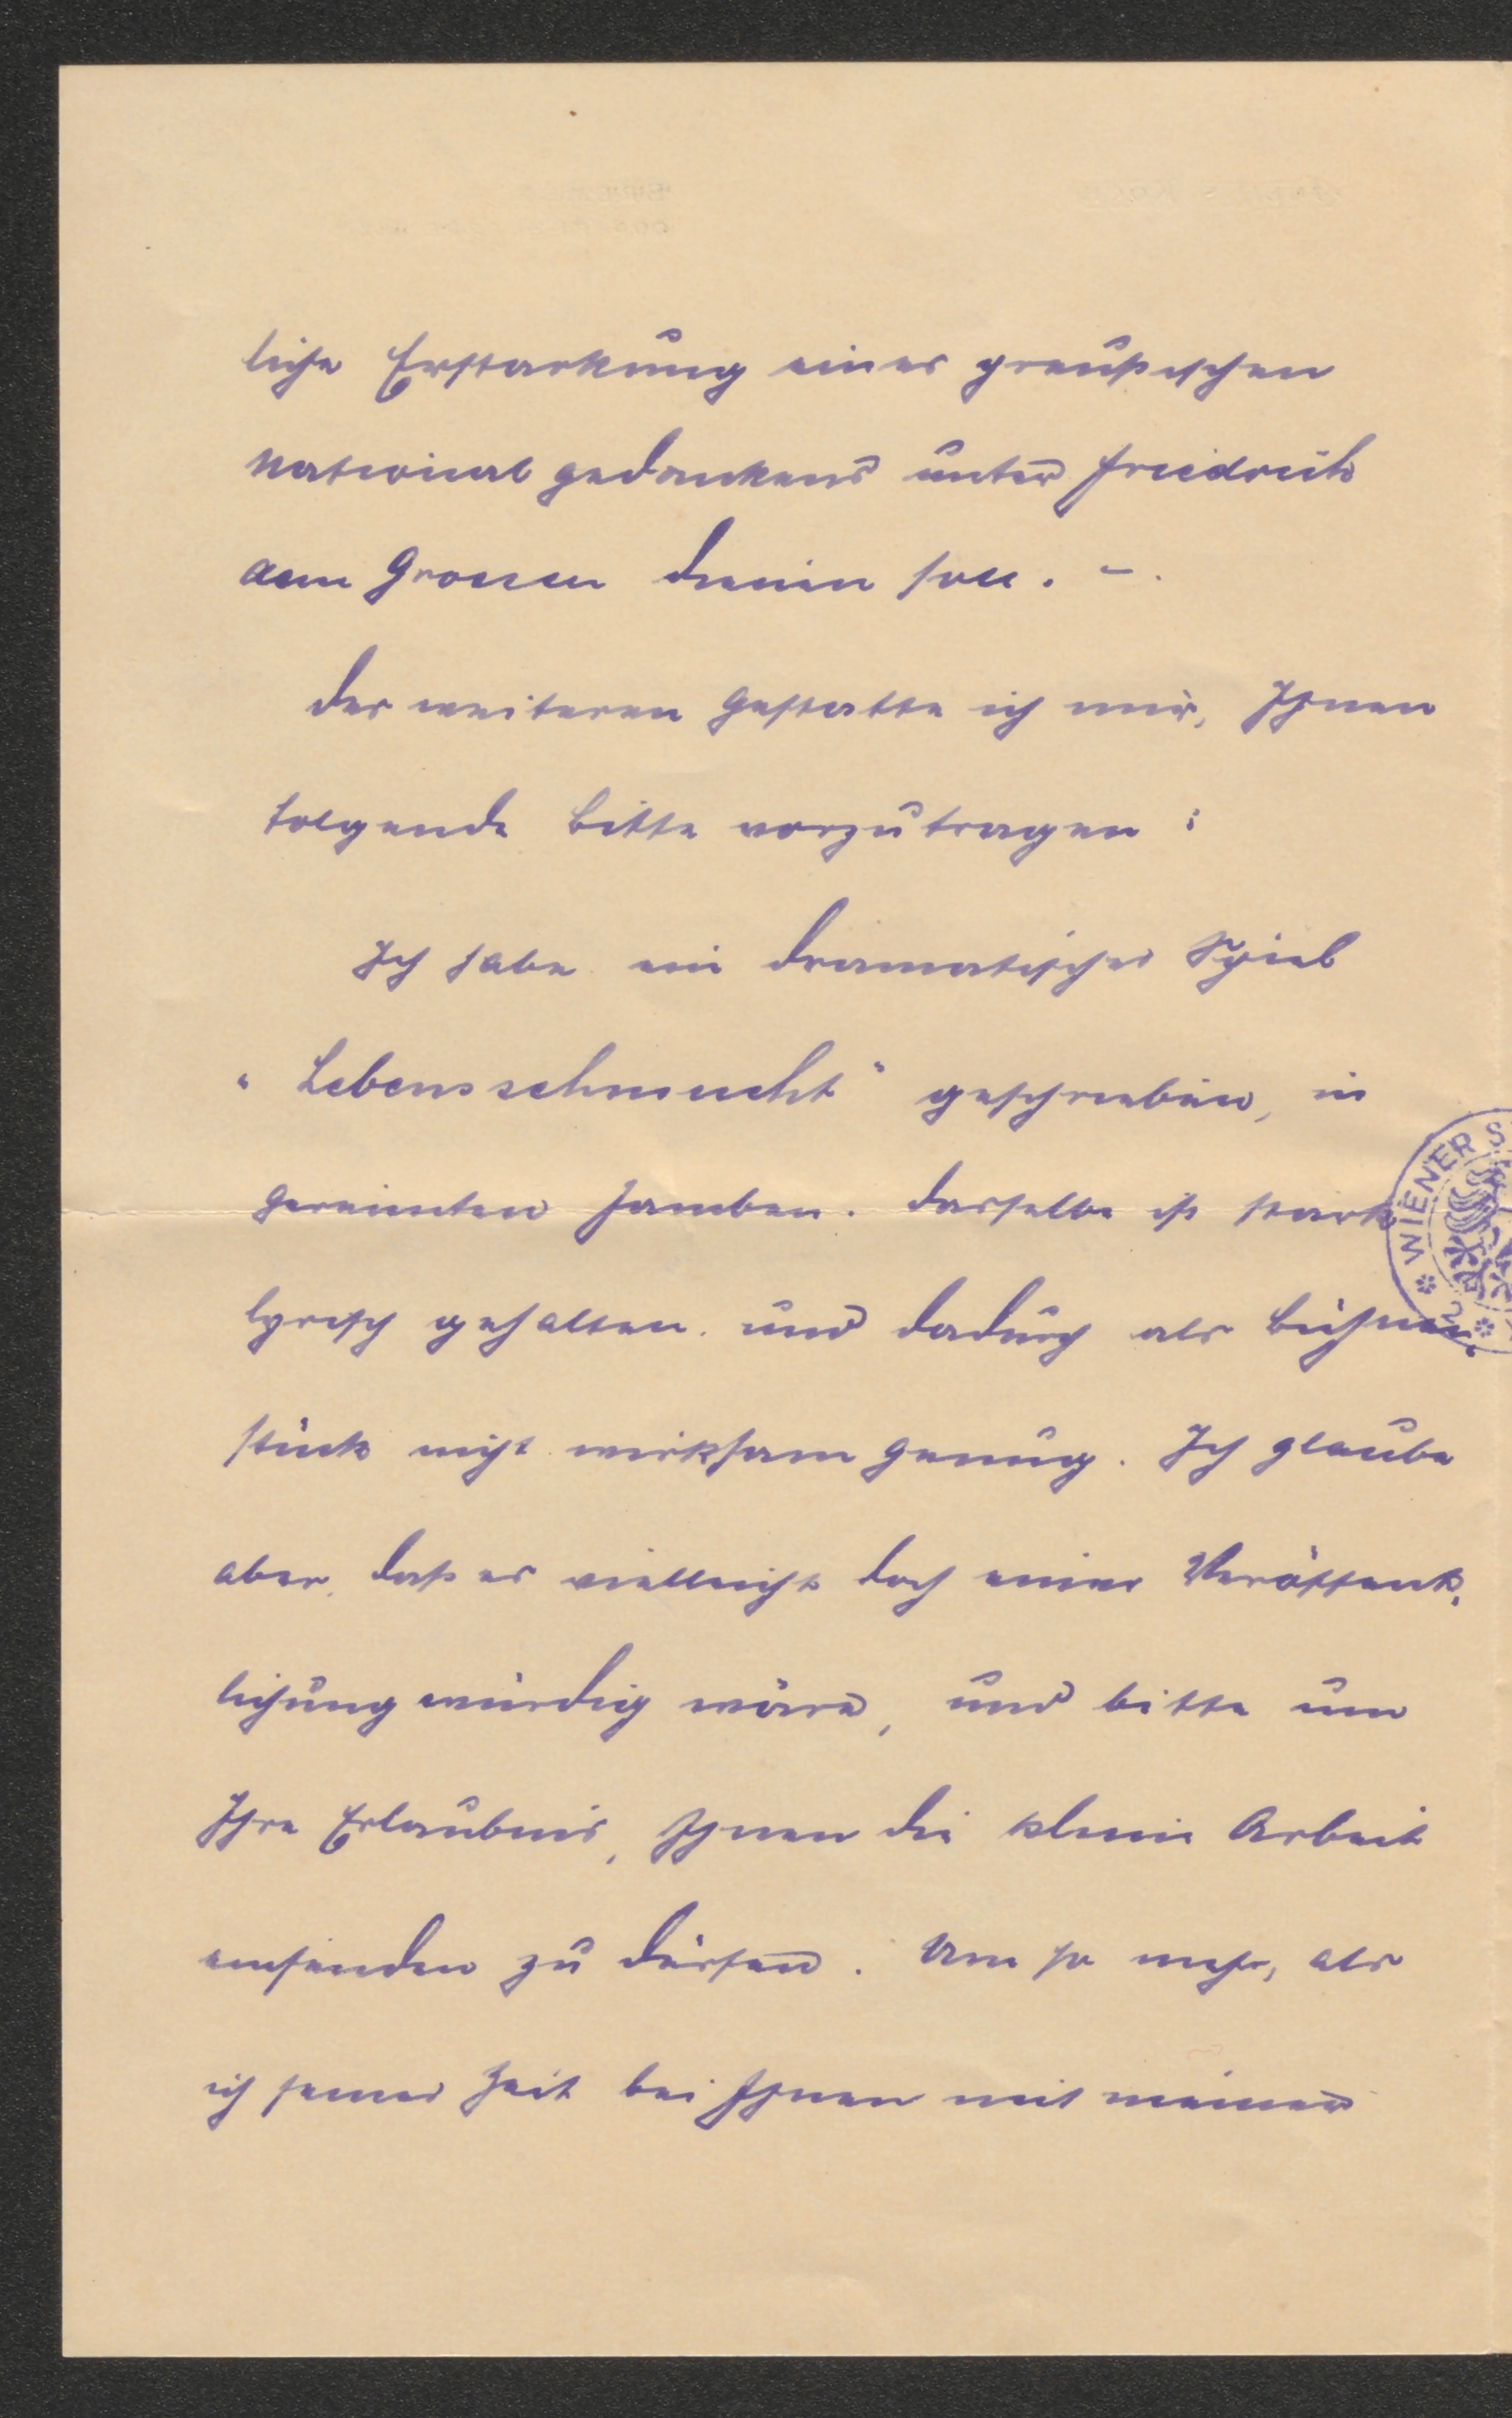 liche Erstarkung eines preußischen
Nationalgedankens unter Friedrich
dem Grossen dienen soll. –.
Des weiteren gestatte ich mir, Ihnen
folgende Bitte vorzutragen:
Ich habe ein dramatisches Spiel
"Lebenssehnsucht" geschrieben, in
gereimten Jamben. Dasselbe ist stark
lyrisch gehalten und dadurch als Bühnen-
stück nicht wirksam genug. Ich glaube
aber, daß es vielleicht doch einer Veröffent-
lichung würdig wäre, und bitte um
Ihre Erlaubnis, Ihnen die kleine Arbeit
einsenden zu dürfen. Um so mehr, als
ich seiner Zeit bei Ihnen mit meiner
WIENER S